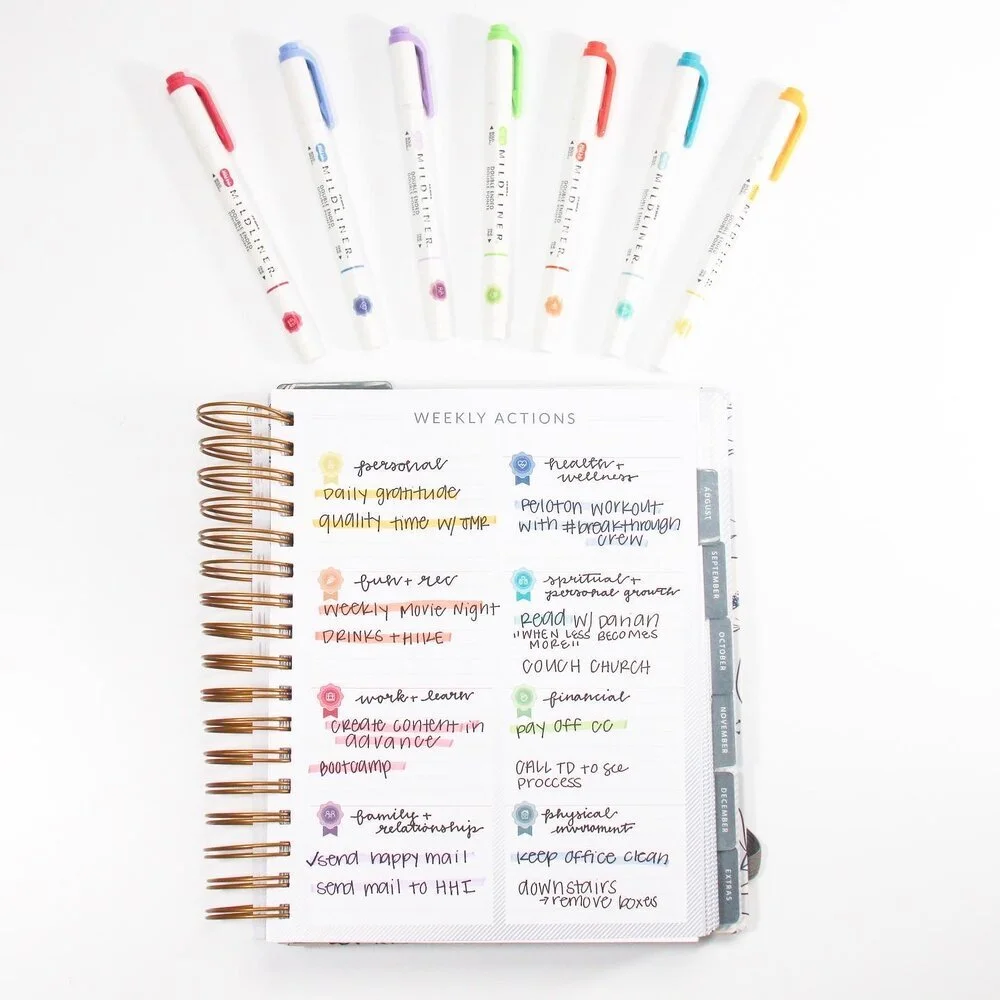 MILDLINER.
DOUBLE ENDED
MILDLINER.
DOUBLE ENDED
MILDLINER.
DOUBLE ENDED
MILDLINER.
DOUBLE ENDED
MILDLINER.
DOUBLE ENDED
MILDLINER.
DOUBLE ENDED
WEEKLY ACTIONS
personal
Daily gratitude
quality time w/ JMR
fun + rec
Weekly Movie Night
DRINKS + HIKE
work + learn
Create content in
advance
Bootcamp
family +
relationship
✓send happy mail
send mail to HHI
health +
wellness
Peloton workout
with #breakthrough
crew
spritual +
personal growth
Read w/ Danan
"WHEN LESS BECOMES
MORE"
COUCH CHURCH
financial
pay off CC
CALL TD to see
proccess
physical
enviroment
keep office clean
downstairs
→ remove boxes
AUGUST
SEPTEMBER
OCTOBER
NOVEMBER
DECEMBER
EXTRAS